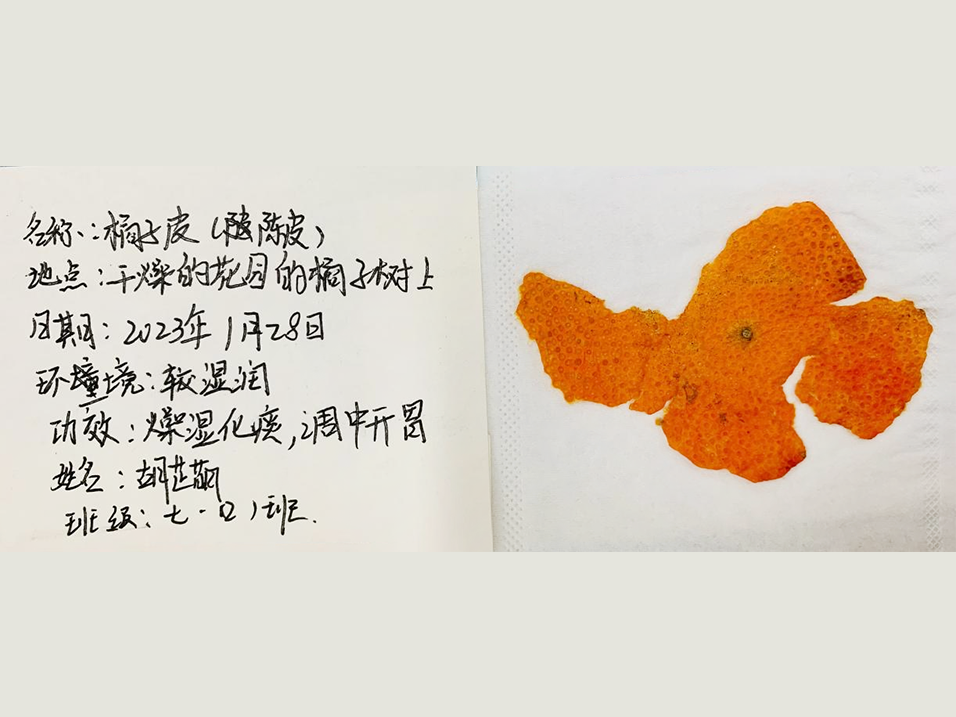 名称:橘子皮(陈皮)
地点:干燥的花园的橘子树上
日期:2023年1月28日
环境:较湿润
功效:燥湿化痰,调中开胃
姓名:胡芷
班级:七·班.